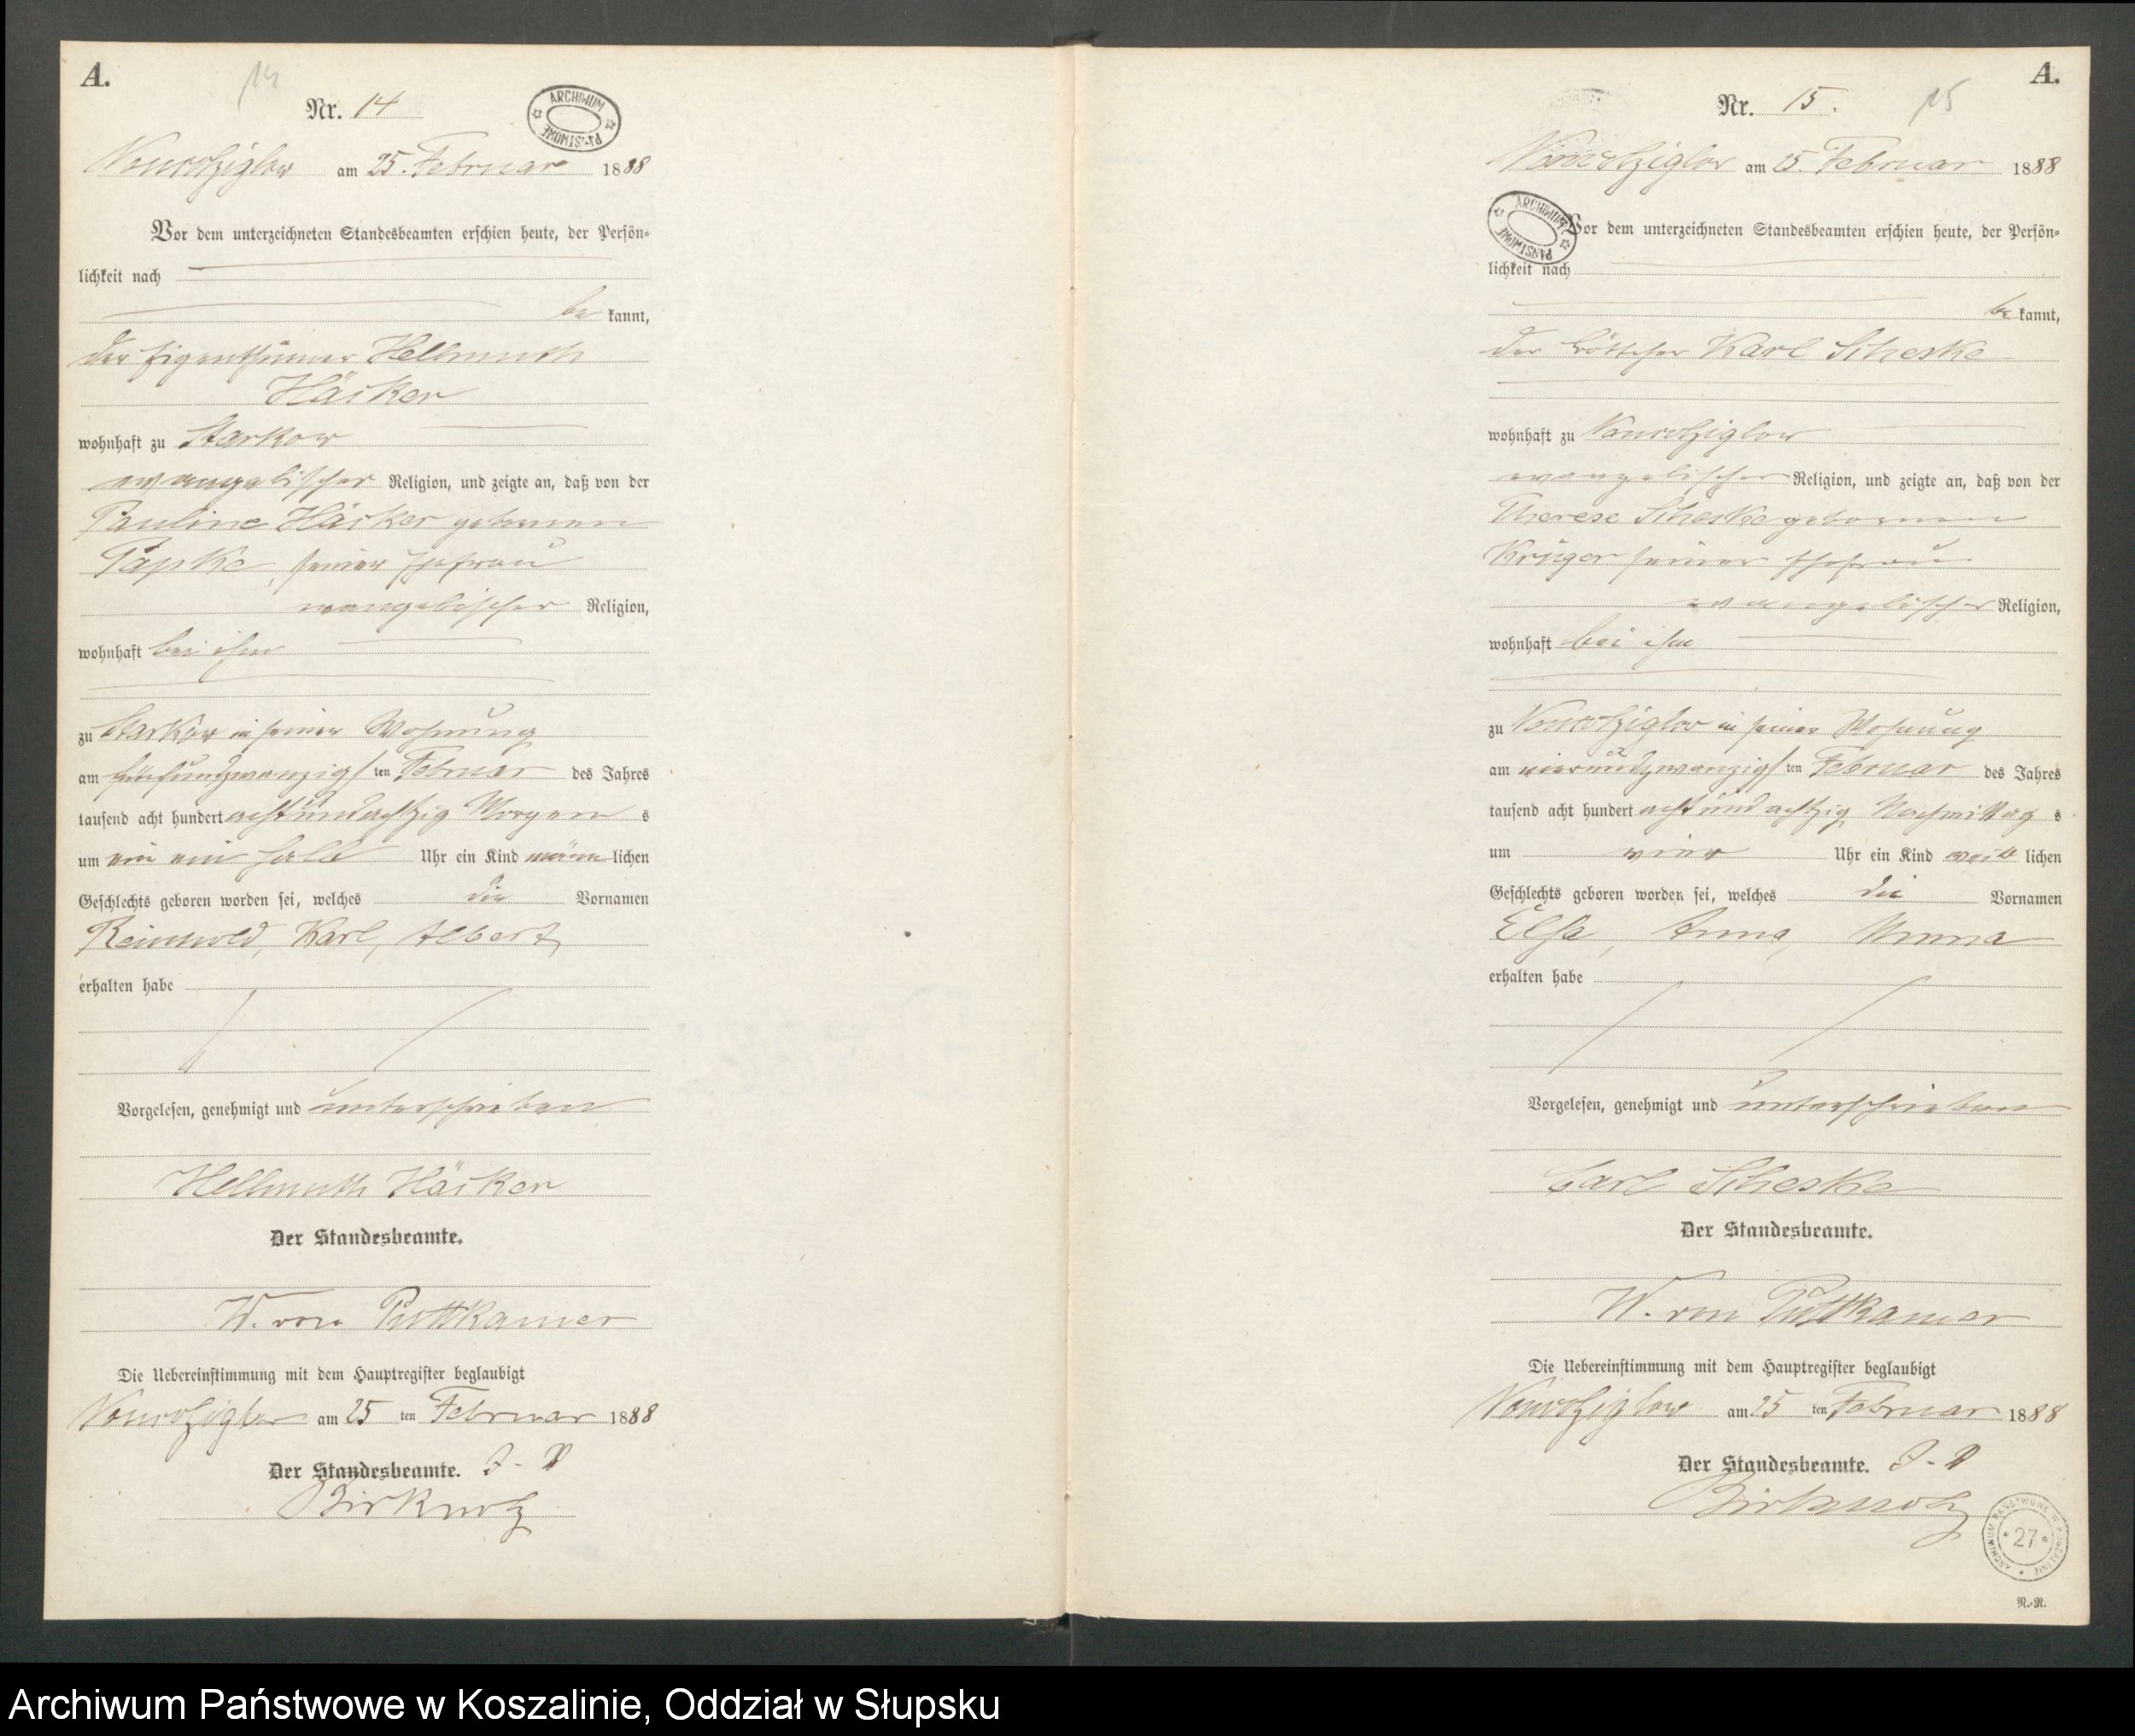 A.
14
Nr. 14
ARCHIWUM PAŃSTWOWE
am 25. Februar 1888
Vor dem unterzeichneten Standesbeamten erschien heute, der Persön-
lichkeit nach
be kannt,
der Eigenthümer Hellmuth
Häcker
wohnhaft zu Starkow
evangelischer Religion, und zeigte an, daß von der
Pauline Häcker geborenen
Papke, seiner Ehefrau
evangelischer Religion,
wohnhaft bei ihm
zu Starkow in seiner Wohnung
am fünfundzwanzigsten Februar des Jahres
tausend acht hundert achtundachtzig Morgens
um ein ein halb Uhr ein Kind männlichen
Geschlechts geboren worden sei, welches die Vornamen
Reinhold, Karl, Albert
erhalten habe
Vorgelesen, genehmigt und unterschrieben
Hellmuth Häcker
Der Standesbeamte.
W. von Puttkamer
Die Uebereinstimmung mit dem Hauptregister beglaubigt
am 25 ten Februar 1888
Der Standesbeamte. J. V
A.
15
Nr. 15.
am 25. Februar 1888
ARCHIWUM PAŃSTWOWE
Vor dem unterzeichneten Standesbeamten erschien heute, der Persön-
lichkeit nach
be kannt,
der Böttcher Karl Scheske
wohnhaft zu
evangelischer Religion, und zeigte an, daß von der
Therese Scheske geborenen
Krüger seiner Ehefrau
evangelischer Religion,
wohnhaft bei ihm
zu in seiner Wohnung
am vierundzwanzigsten Februar des Jahres
tausend acht hundert achtundachtzig Nachmittags
um vier Uhr ein Kind weiblichen
Geschlechts geboren worden sei, welches die Vornamen
Else, Anna,
erhalten habe
Vorgelesen, genehmigt und unterschrieben
Carl Scheske
Der Standesbeamte.
W. von Puttkamer
Die Uebereinstimmung mit dem Hauptregister beglaubigt
am 25 ten Februar 1888
Der Standesbeamte. J. V
ARCHIWUM PAŃSTWOWE W KOSZALINIE
27
N.-R.
Archiwum Państwowe w Koszalinie, Oddział w Słupsku